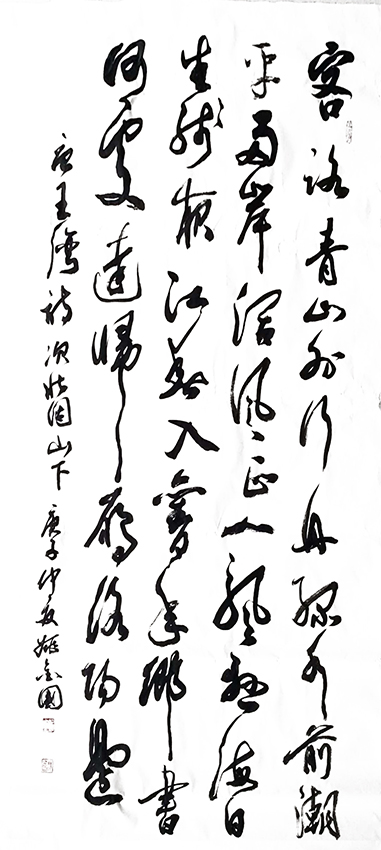 客路青山外行舟綠水前潮
平兩岸闊風正一帆懸海日
生殘夜江春入舊年鄉書
何處達歸雁洛陽邊
唐王灣詩次北固山下庚子仲夏金國